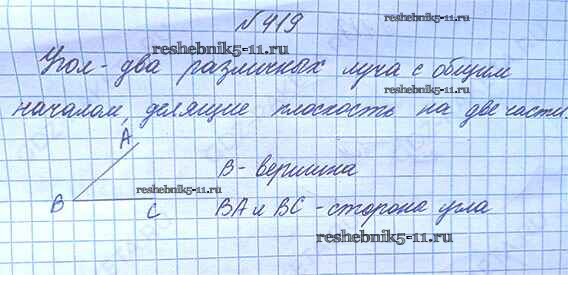 №419
reshebnik5-11.ru
Угол - два различных луча с общим
началом, делящие плоскость на две части.
A
B - вершина
reshebnik5-11.ru
B
C
BA и BC - сторона угла
reshebnik5-11.ru